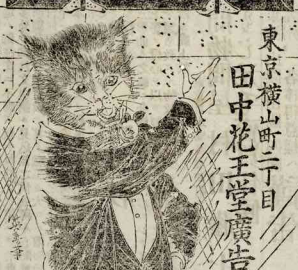 東京横山町二丁目
田中花王堂廣告